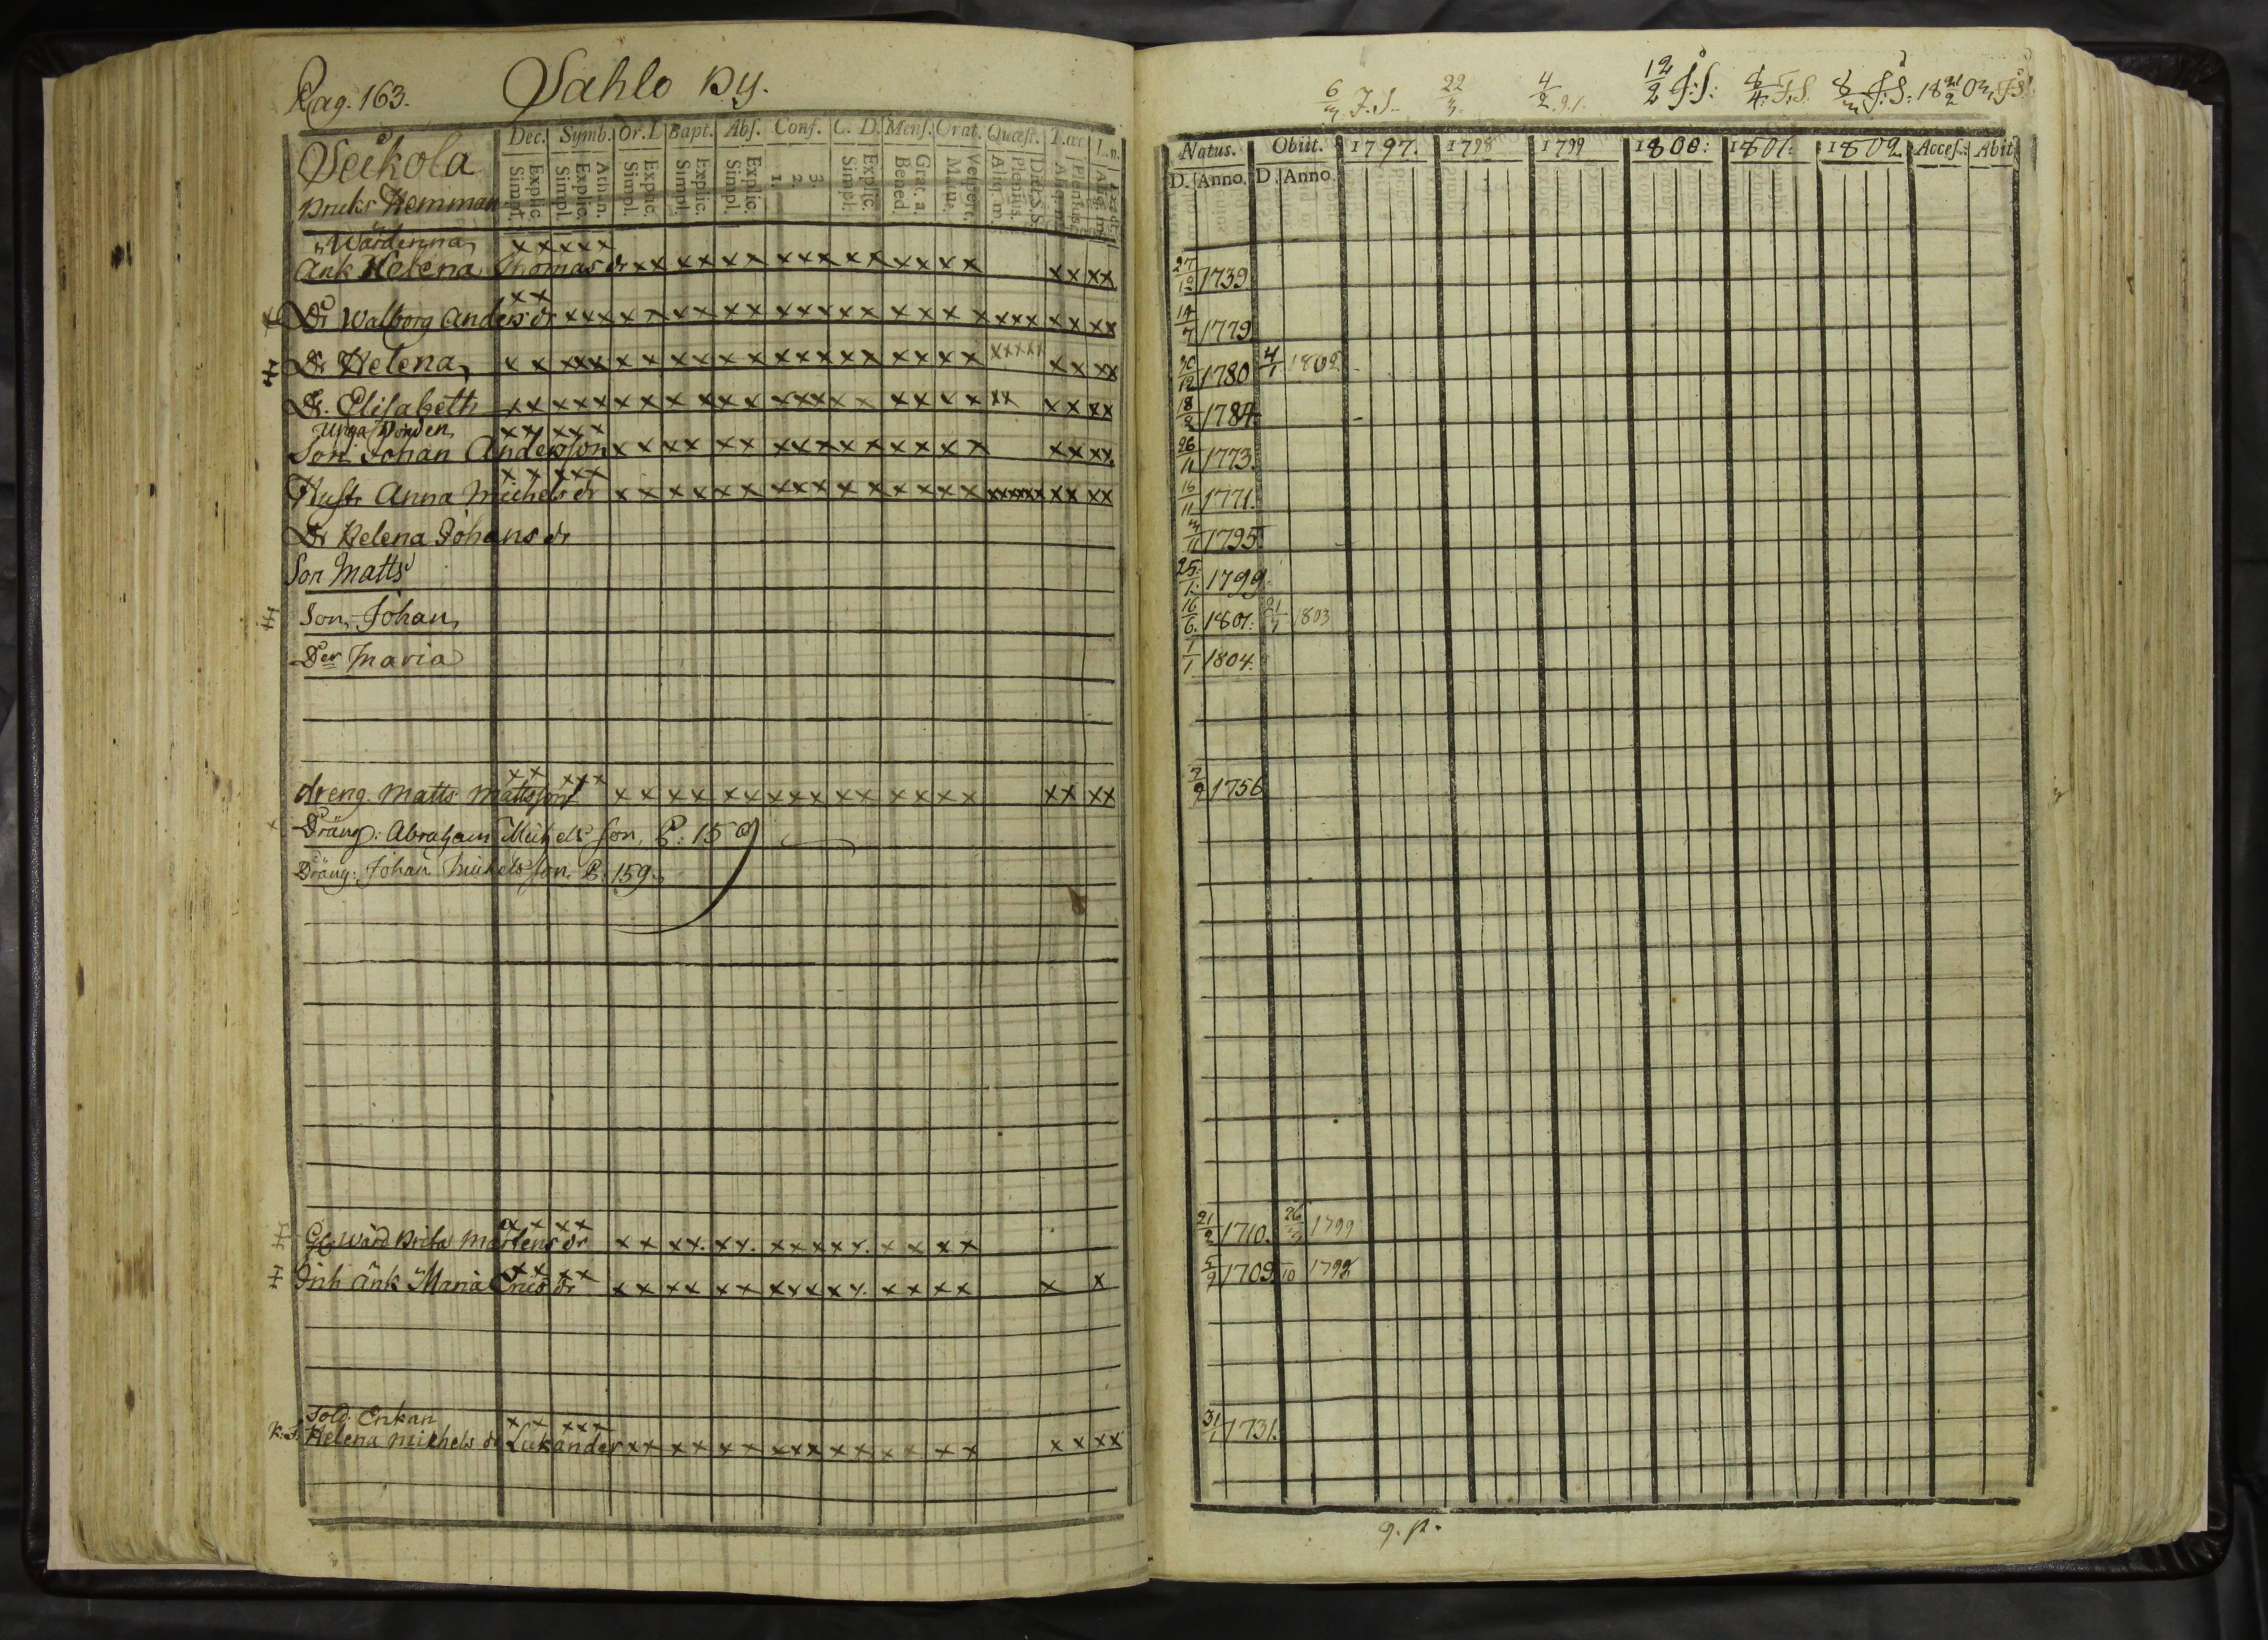 Pag. 163. Sahlo By.
Seikola
Bruks Hemman
Dec. Symb. Or. D. Bapt. Abs. Conf. C. D. Mens. Orat. Quæst. T. œc. L. n.
Explic. Simpl. Athan. Explic. Simpl. Explic. Simpl. Explic. Simpl. Explic. Simpl. 1. 2. 3. Explic. Simpl. Grat. a. Bened. Vespert. Matut. Dict. S. S. Plenius. Aliq. m. Plenius. Aliq. m.
Wärdinna x x x x x
Änk Helena Thomas dr x x x x x x x x x x x x x x x x x x x
x x
Dr Walborg Anders dr x x x x x x x x x x x x x x x x x x x x x x x x x
Dr Helena x x x x x x x x x x x x x x x x x x x x x x x x x x x x x
Dr. Elisabeth x x x x x x x x x x x x x x x x x x x x x x x x x x
Unga Bonden x x x x x
Son Johan Andersson x x x x x x x x x x x x x x x x x x x
x x x x x
Hustr Anna Michels dr x x x x x x x x x x x x x x x x x x x x x x x x x
Dr Helena Johans dr
Son Matts
Son Johan
Der Maria
x x x x x
dreng. Matts Mattsson x x x x x x x x x x x x x x x x x x x
Dräng: Abraham Michelsson, P: 159
Dräng: Johan Michelsson P. 159.
x x x x
Gl Wärd Brita Mårtens dr x x x x. x x. x x x x x. x x x x
x x x x
Inh Änk Maria Erics dr x x x x x x x x x x x. x x x x x x
Sold. Enkan x x x x x
K. S. Helena Michels dr Lukander x x x x x x x x x x x x x x x x x x x
6/3 J. S. 22/3. 4/2 91. 12/2 J: S: 8/4: J. S. 8/3 J: S: 18 21/2 03, J S.
Natus. Obiit. 1797. 1798 1799 1800: 1801: 1802 Acces. Abit.
D. Anno. D. Anno.
27/12 1739
14/7 1779
30/12 1780 4/1 1802
18/2 1784
26/11 1773.
16/11 1771.
3/11 1795
25:/1. 1799
16/6. 1801: 21/1 1803
1/1 1804.
7/9 1756
21/2 1710. 26/3 1799
5/9 1709 /10 1792
31/1 1731.
g. p.